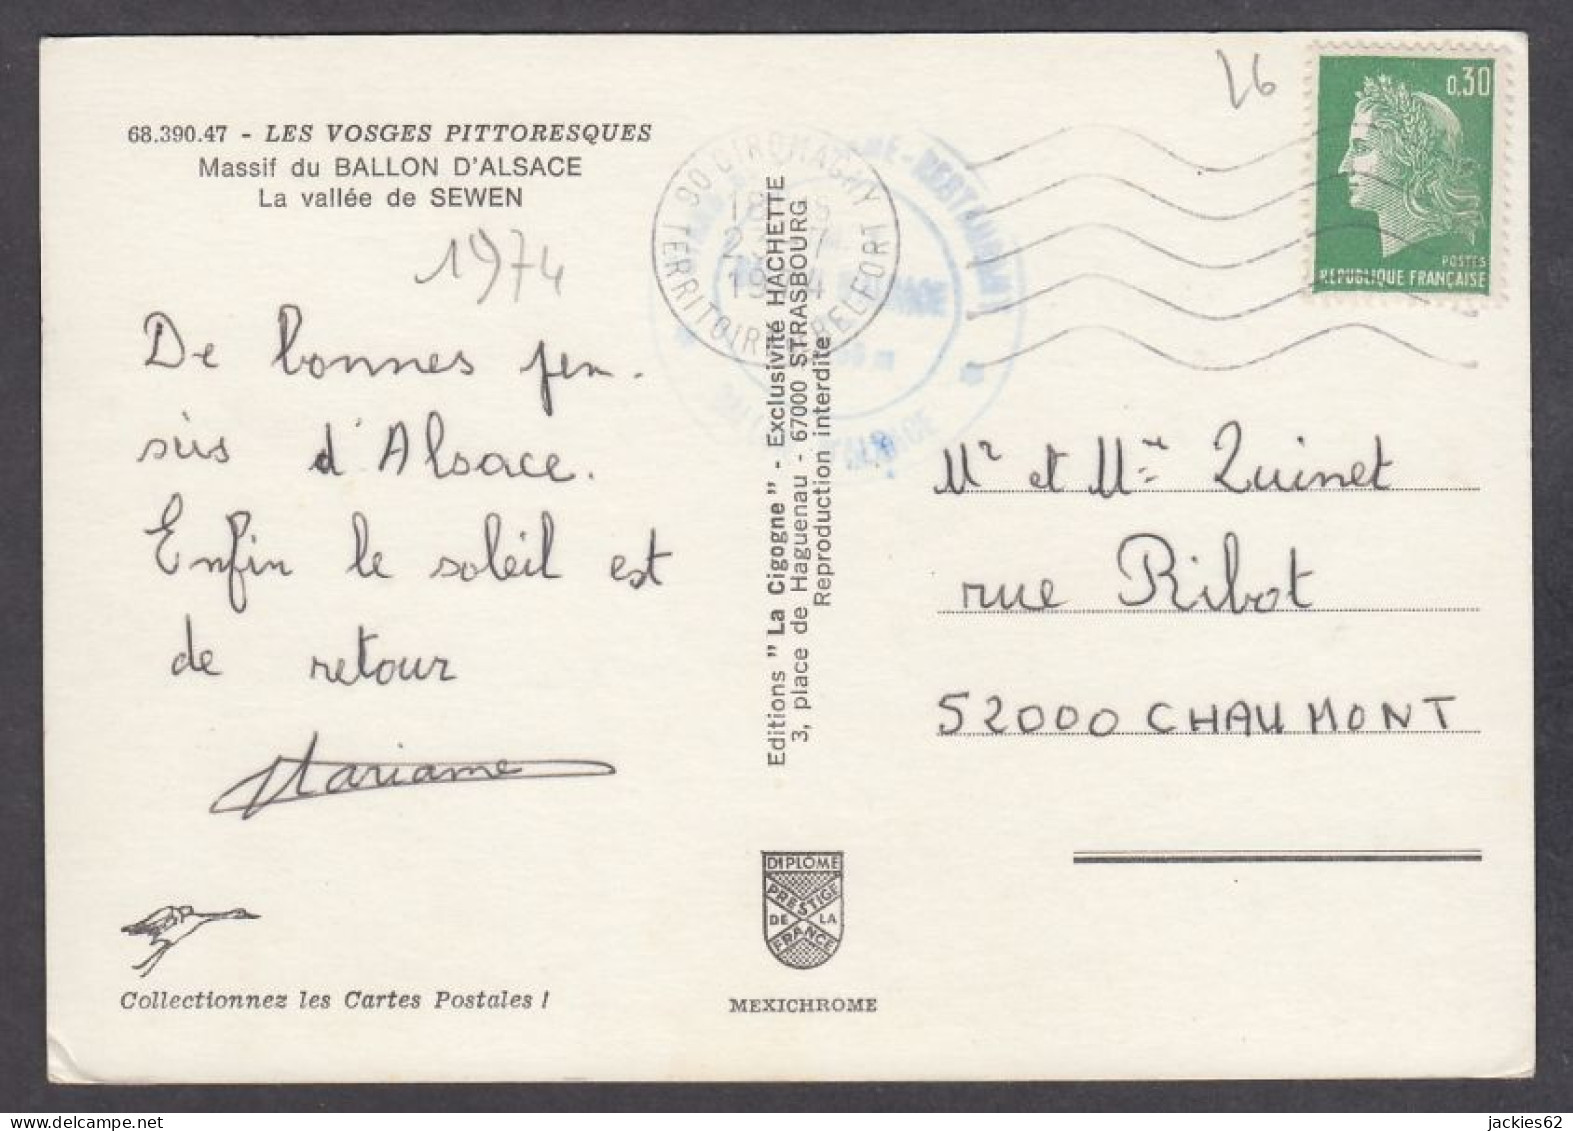 68.390.47 - LES VOSGES PITTORESQUES
Massif du BALLON D'ALSACE
La vallée de SEWEN
1974
De bonnes pen-
sées d'Alsace.
Enfin le soleil est
de retour
Mariame
Collectionnez les Cartes Postales !
90 GIROMAGNY
TERRITOIRE BELFORT
Editions "La Cigogne" - Exclusivité HACHETTE
3, place de Haguenau - 67000 STRASBOURG
Reproduction interdite
DIPLÔME
PRESTIGE
DE LA
FRANCE
MEXICHROME
26
0,30
POSTES
REPUBLIQUE FRANÇAISE
Mr et Mme Quinet
rue Ribot
52000 CHAUMONT
jackies62